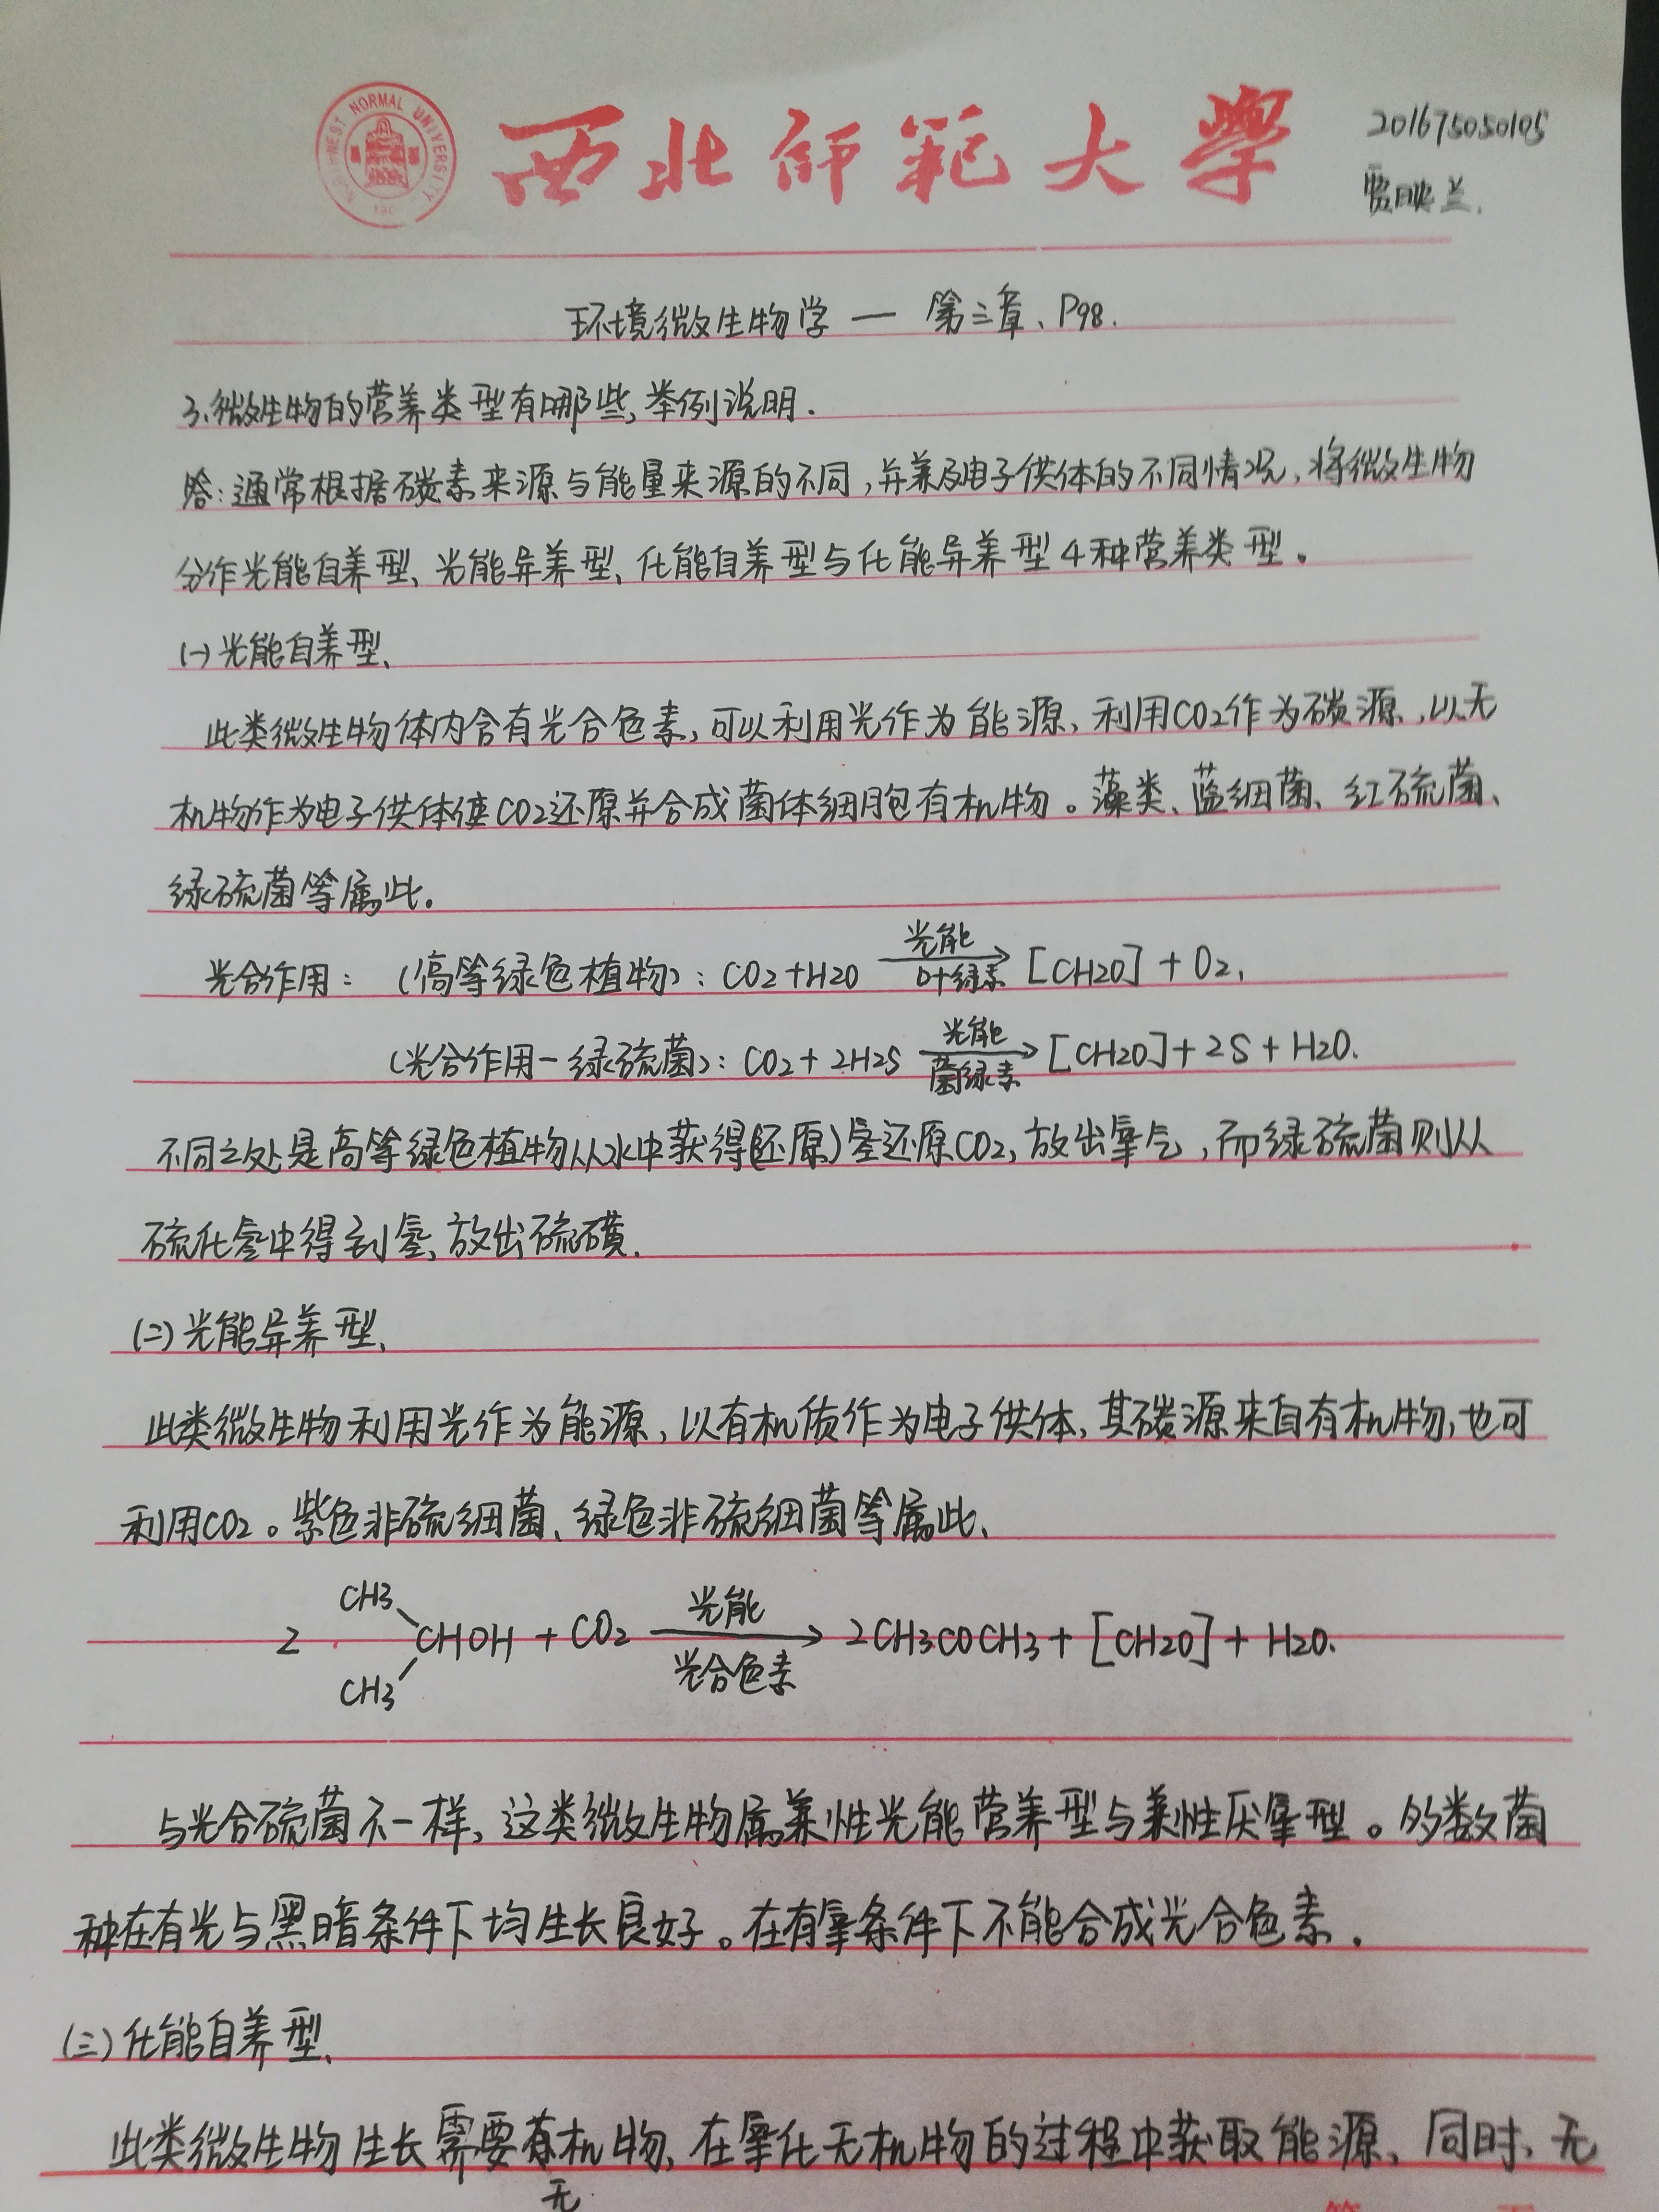 NORTHWEST NORMAL UNIVERSITY
西北师范大学
201675050105
贾映兰.
环境微生物学 — 第三章、P98.
3、微生物的营养类型有哪些,举例说明.
答:通常根据碳素来源与能量来源的不同,并兼及电子供体的不同情况,将微生物
分作光能自养型、光能异养型、化能自养型与化能异养型4种营养类型。
(一)光能自养型、
此类微生物体内含有光合色素,可以利用光作为能源、利用CO2作为碳源,以无
机物作为电子供体使CO2还原并合成菌体细胞有机物。藻类、蓝细菌、红硫菌、
绿硫菌等属此。
光合作用: (高等绿色植物): CO2+H2O 光能→叶绿素 [CH2O] + O2、
(光合作用-绿硫菌): CO2 + 2H2S 光能→菌绿素 [CH2O] + 2S + H2O.
不同之处是高等绿色植物从水中获得(还原)氢还原CO2,放出氧气,而绿硫菌则从
硫化氢中得到氢、放出硫磺.
(二)光能异养型、
此类微生物利用光作为能源,以有机质作为电子供体,其碳源来自有机物,也可
利用CO2。紫色非硫细菌、绿色非硫细菌等属此、
CH3
2 CHOH + CO2 光能→光合色素 2CH3COCH3 + [CH2O] + H2O.
CH3
与光合硫菌不一样,这类微生物属兼性光能营养型与兼性厌氧型。多数菌
种在有光与黑暗条件下均生长良好。在有氧条件下不能合成光合色素.
(三)化能自养型、
此类微生物生长需要有机物,在氧化无机物的过程中获取能源、同时、无
无